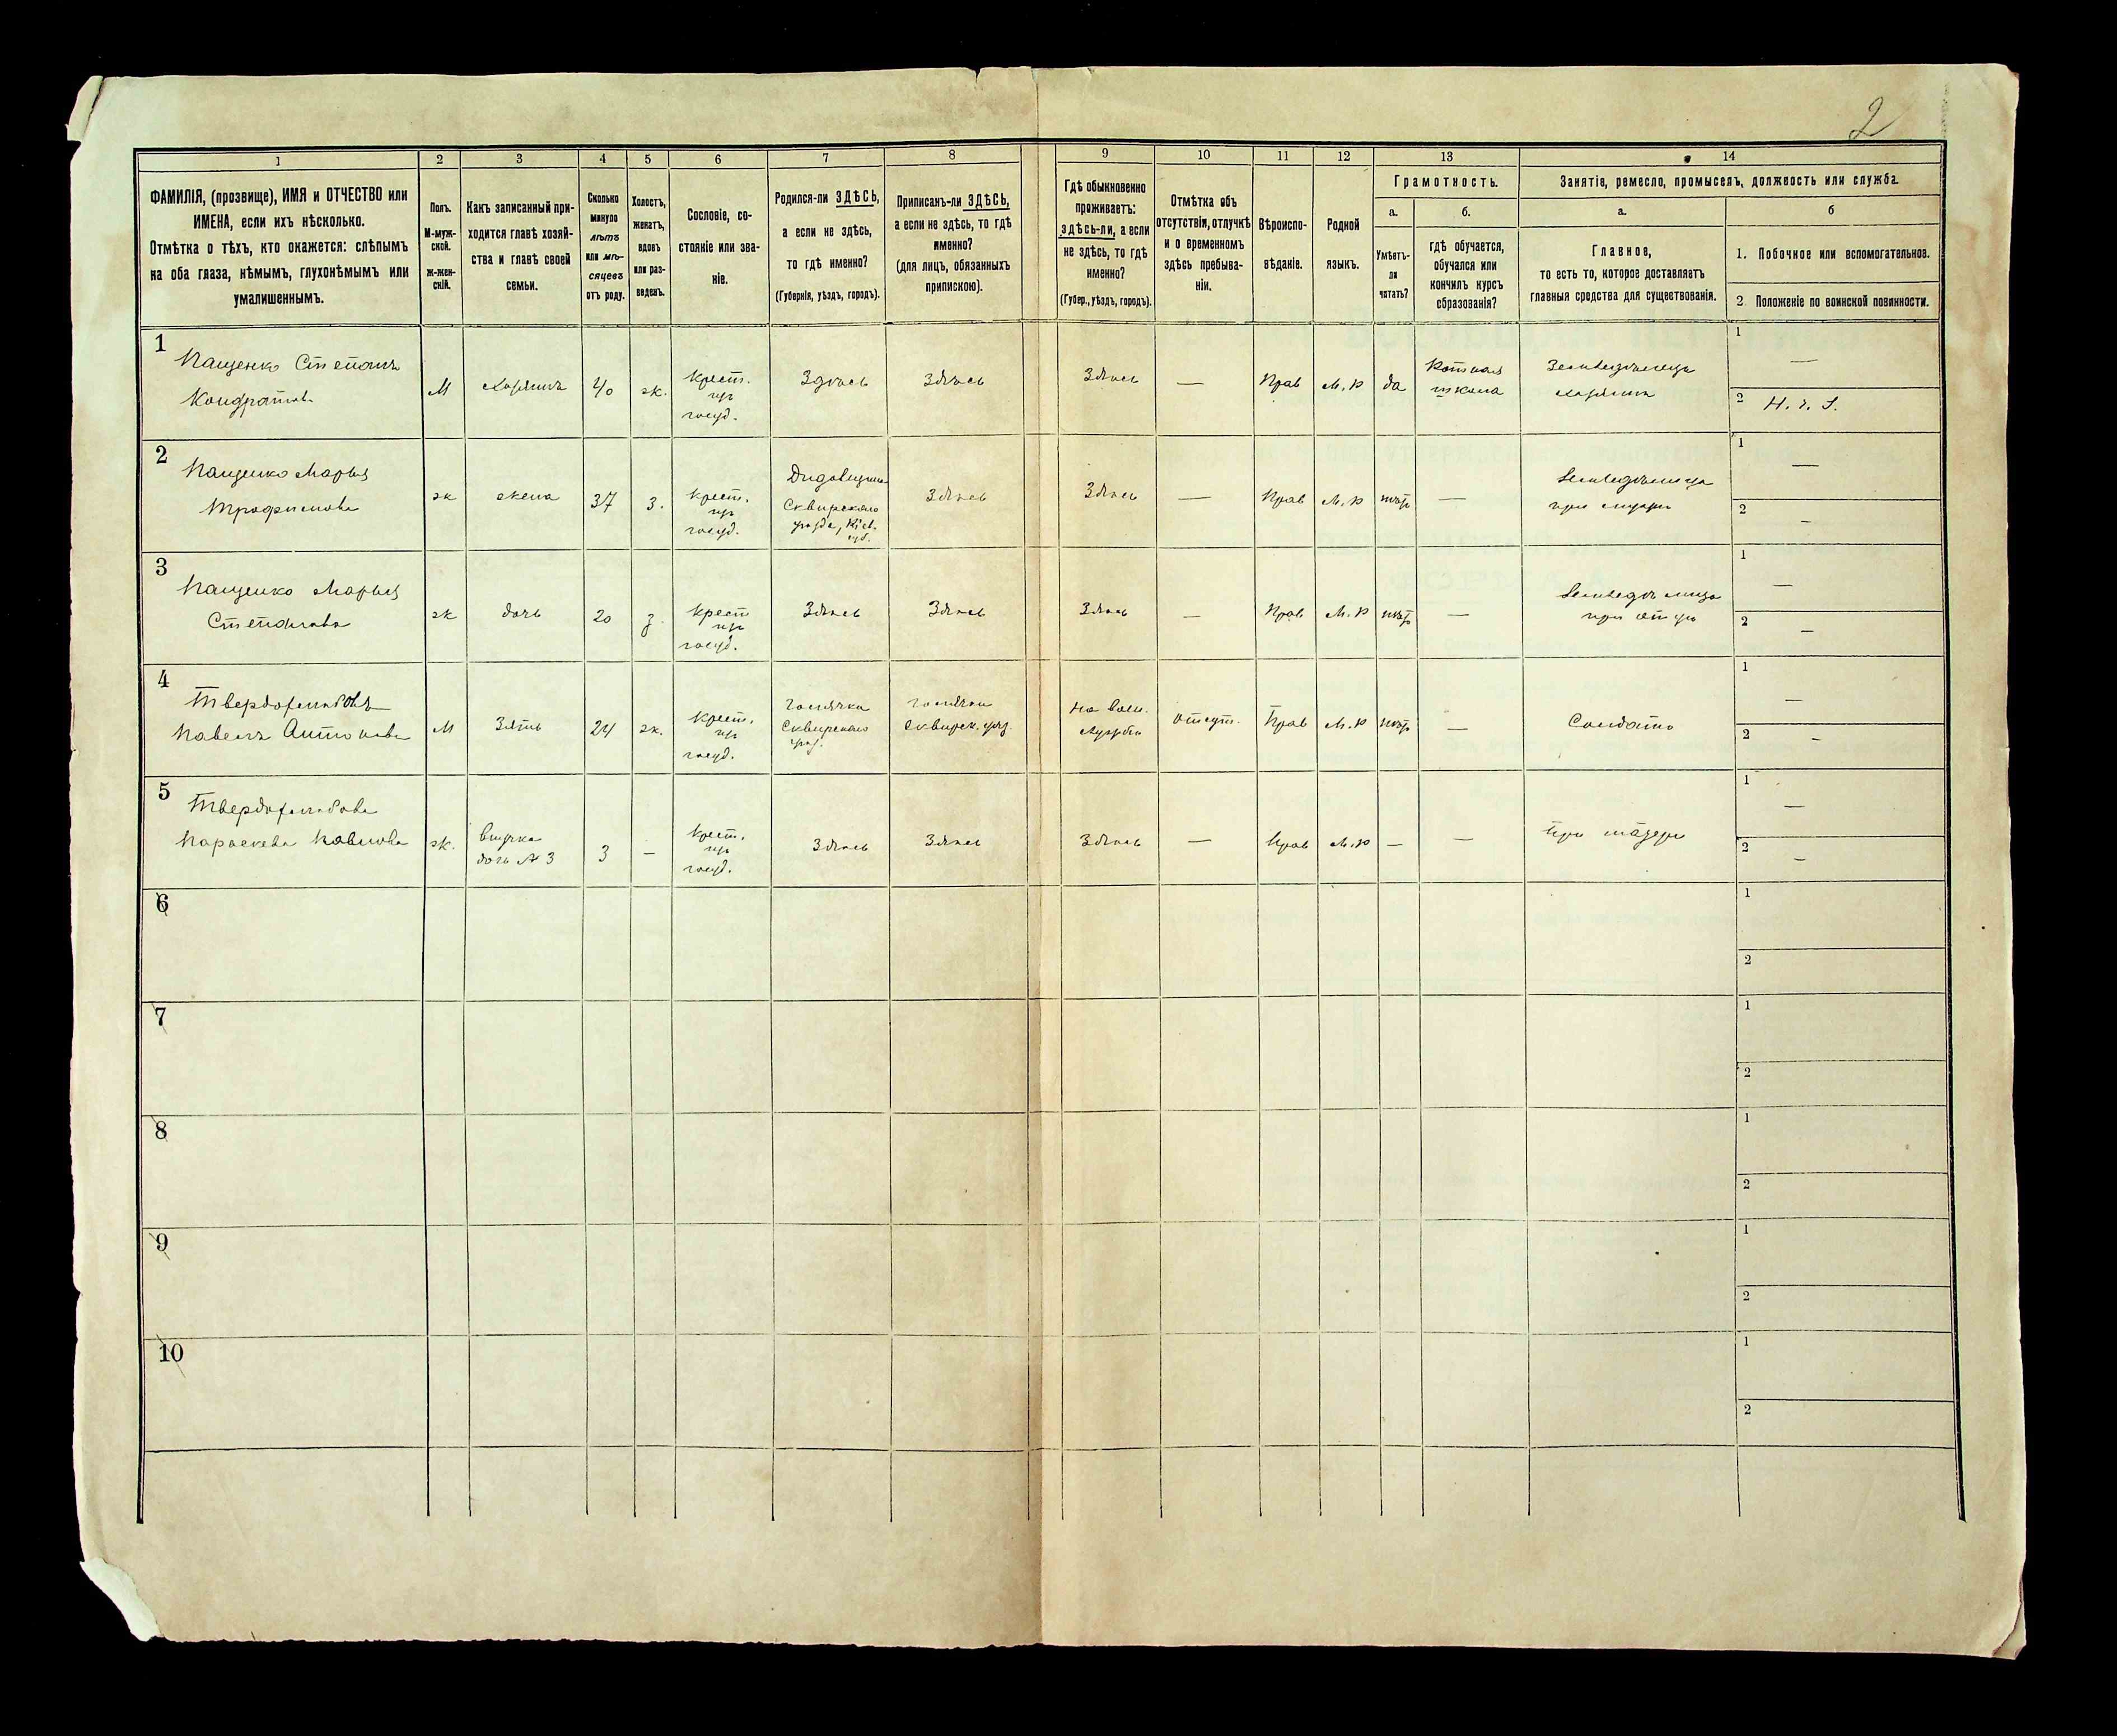 2
1 2 3 4 5 6 7 8 9 10 11 12 13 14
ФАМИЛІЯ, (прозвище), ИМЯ и ОТЧЕСТВО или
ИМЕНА, если ихъ нѣсколько.
Отмѣтка о тѣхъ, кто окажется: слѣпымъ
на оба глаза, нѣмымъ, глухонѣмымъ или
умалишеннымъ.
Полъ.
М-муж-
ской.
Ж-жен-
скій.
Какъ записанный при-
ходится главѣ хозяй-
ства и главѣ своей
семьи.
Сколько
минуло
лѣтъ
или мѣ-
сяцевъ
отъ роду.
Холостъ,
женатъ,
вдовъ
или раз-
веденъ.
Сословіе, со-
стояніе или зва-
ніе.
Родился-ли ЗДѢСЬ,
а если не здѣсь,
то гдѣ именно?
(Губернія, уѣздъ, городъ).
Приписанъ-ли ЗДѢСЬ,
а если не здѣсь, то гдѣ
именно?
(для лицъ, обязанныхъ
припискою).
Гдѣ обыкновенно
проживаетъ:
ЗДѢСЬ-ЛИ, а если
не здѣсь, то гдѣ
именно?
(Губер., уѣздъ, городъ).
Отмѣтка объ
отсутствіи, отлучкѣ
и о временномъ
здѣсь пребыва-
ніи.
Вѣроиспо-
вѣданіе.
Родной
языкъ.
Грамотность.
а.
Умѣетъ-
ли
читать?
б.
гдѣ обучается,
обучался или
кончилъ курсъ
образованія?
Занятіе, ремесло, промыселъ, должность или служба.
а.
Главное,
то есть то, которое доставляетъ
главныя средства для существованія.
б
1. Побочное или вспомогательное.
2. Положеніе по воинской повинности.
1
Пащенко Степанъ
Кондратовъ
М
хозяинъ
40
ж.
крест.
изъ
госуд.
Здѣсь
Здѣсь
Здѣсь
—
Прав
М. р
да
школа
Земледѣлецъ
хозяинъ
1
—
2
2
Пащенко Марья
Трофимова
ж
жена
37
з.
крест.
изъ
госуд.
Сквирскаго
уѣзда, Кіев.
губ.
Здѣсь
Здѣсь
—
Прав
М. р
нѣтъ
—
Земледѣлица
при мужѣ
1
—
2
–
3
Пащенко Марья
Степанова
ж
дочь
20
з.
крест
изъ
госуд.
Здѣсь
Здѣсь
Здѣсь
—
Прав
М. р
нѣтъ
—
Земледѣлица
при отцѣ
1
—
2
—
4
Твердохлѣбовъ
Павелъ Антоновъ
М
Зять
24
ж.
крест.
изъ
госуд.
Сквирскаго
уѣз.
Сквирск. уѣз.
На воен.
службѣ
отсут.
Прав
М. р
нѣтъ
—
Солдатъ
1
—
2
–
5
Твердохлѣбова
Параскева Павлова
ж.
внучка
дочь № 3
3
–
крест.
изъ
госуд.
Здѣсь
Здѣсь
Здѣсь
—
Прав
М. р
—
—
При матери
1
—
2
–
6
1
2
7
1
2
8
1
2
9
1
2
10
1
2